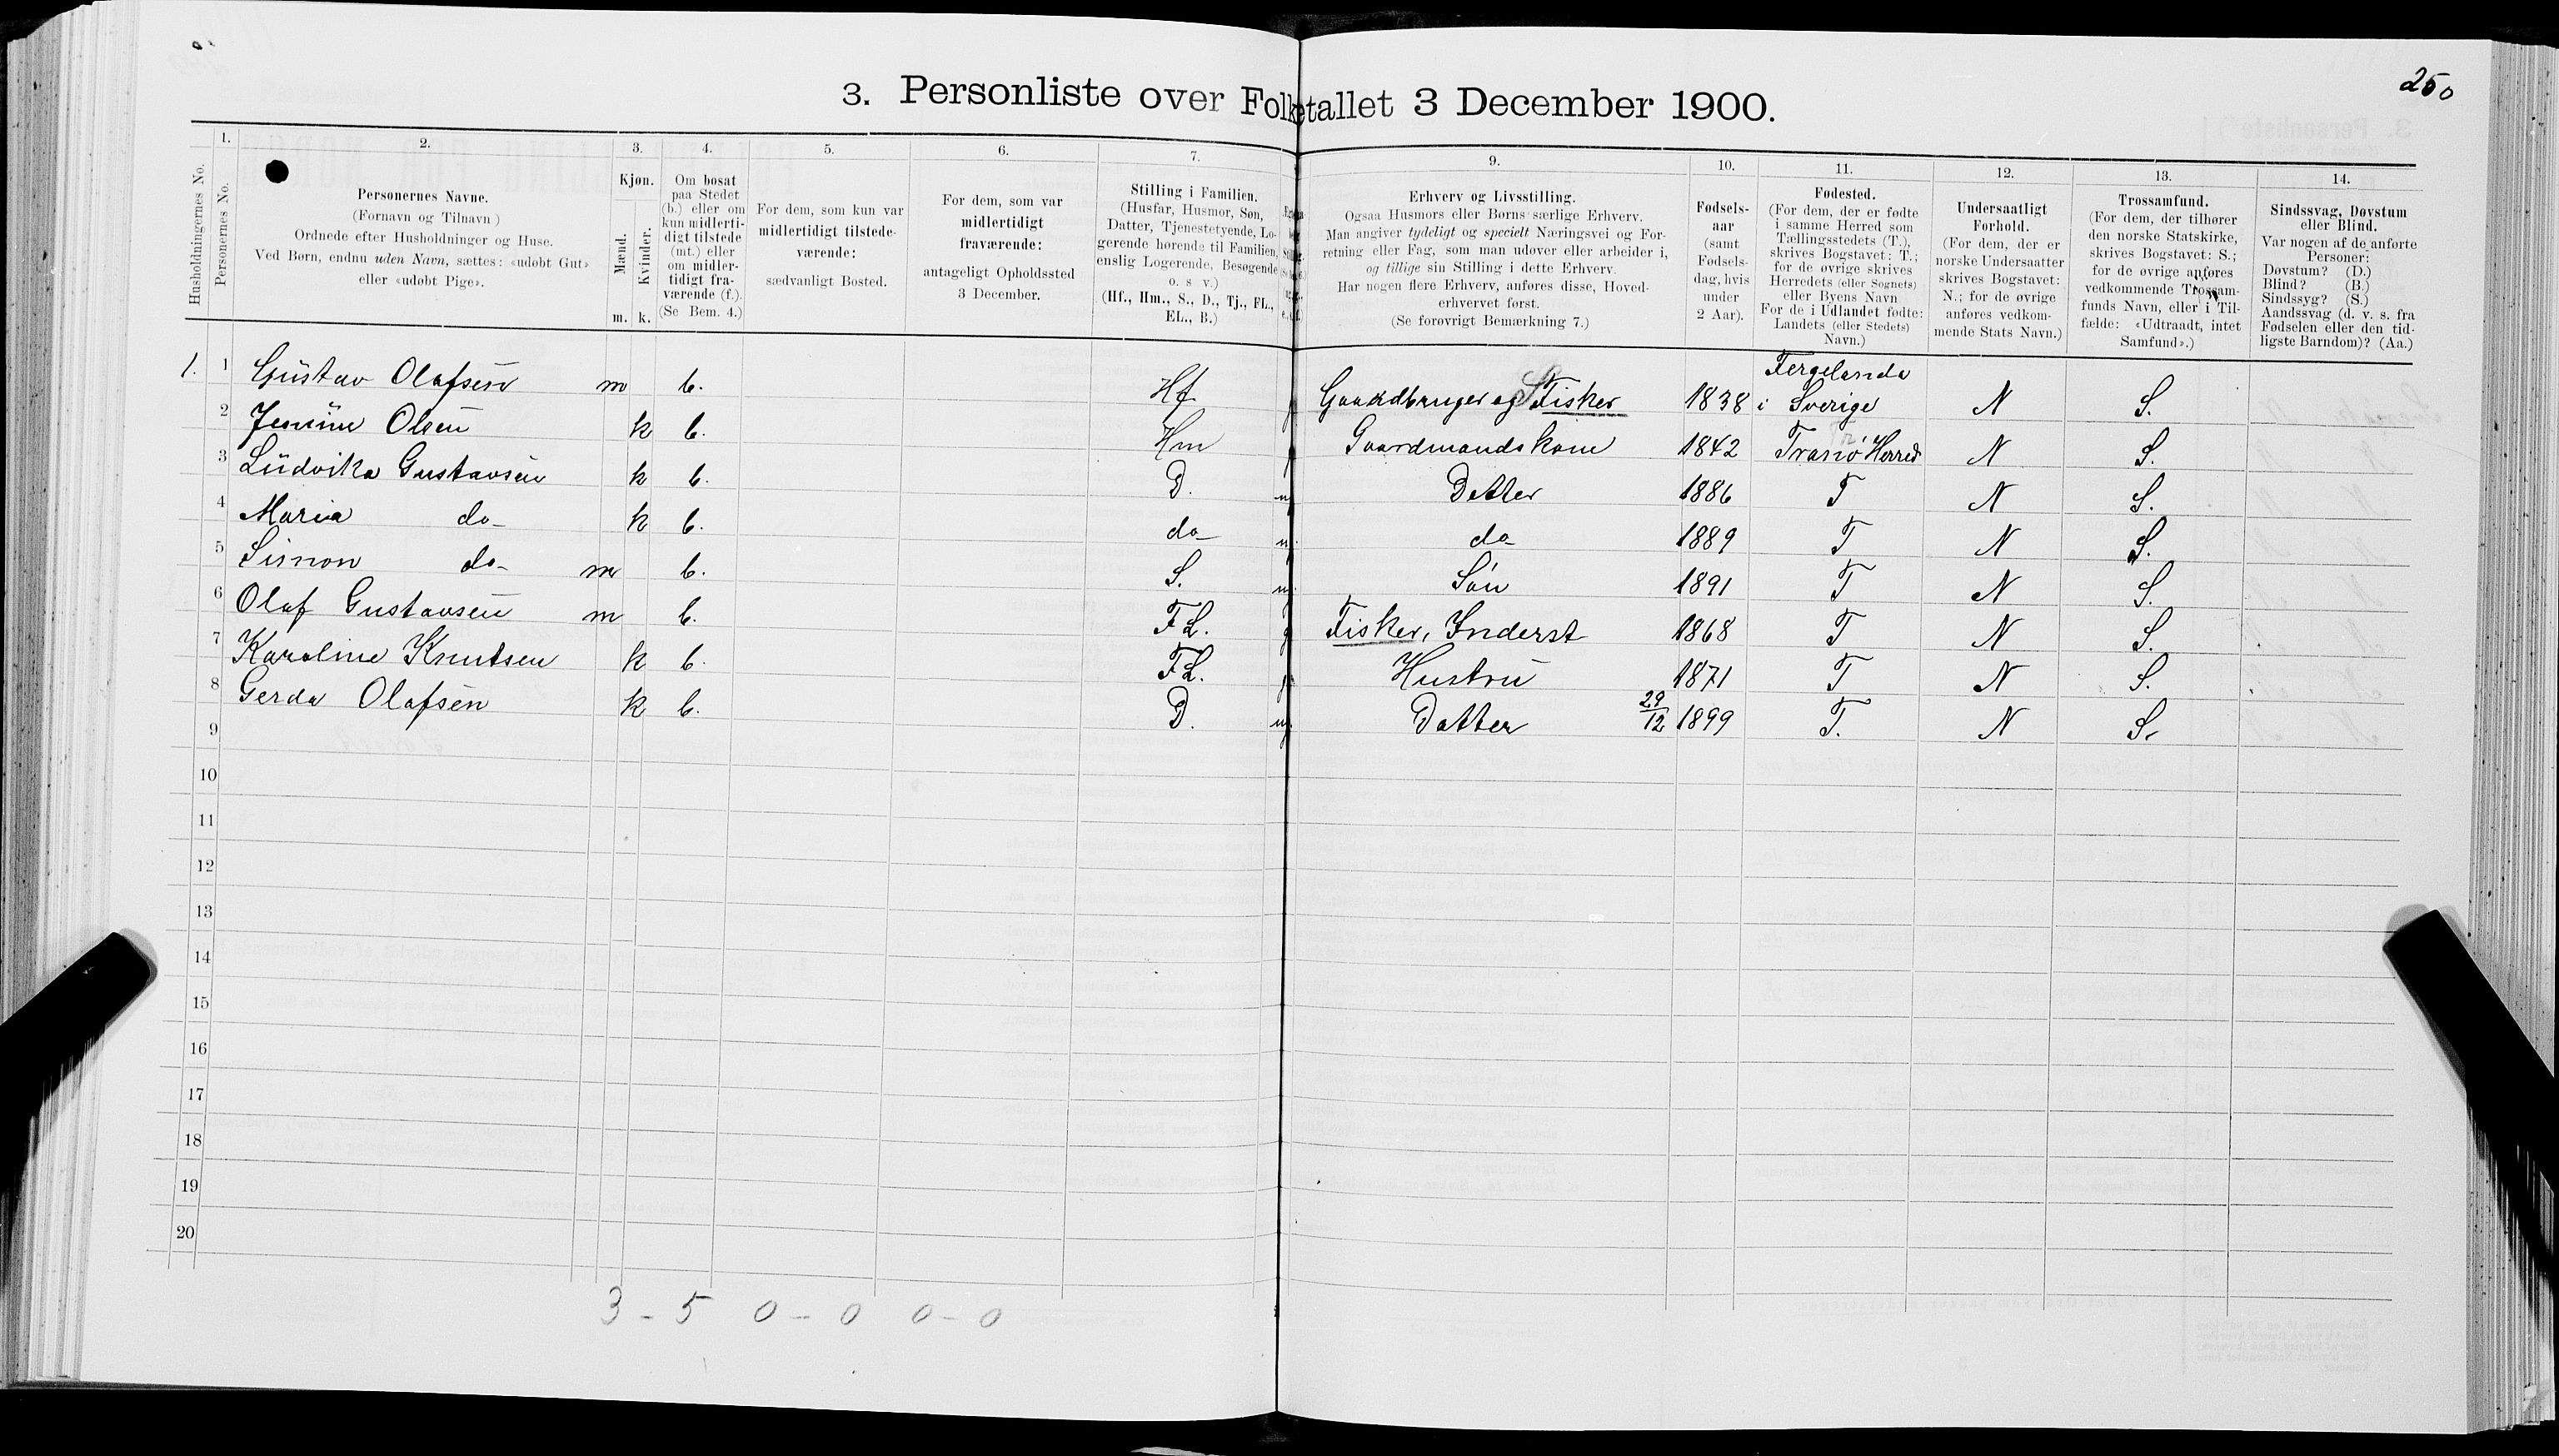 250
3. Personliste over Folketallet 3 December 1900.
1. 2. 3. 4. 5. 6. 7. 9. 10. 11. 12. 13. 14.
Husholdningernes No.
Personernes No.
Personernes Navne.
(Fornavn og Tilnavn)
Ordnede efter Husholdninger og Huse.
Ved Børn, endnu uden Navn, sættes: «udøbt Gut»
eller «udøbt Pige».
Kjøn.
Mænd.
Kvinder.
m. k.
Om bosat
paa Stedet
(b.) eller om
kun midlerti-
digt tilstede
(mt.) eller
om midler-
tidigt fra-
værende (f.).
(Se Bem. 4.)
For dem, som kun var
midlertidigt tilstede-
værende:
sædvanligt Bosted.
For dem, som var
midlertidigt
fraværende:
antageligt Opholdssted
3 December.
Stilling i Familien.
(Husfar, Husmor, Søn,
Datter, Tjenestetyende, Lo-
gerende hørende til Familien,
enslig Logerende, Besøgende
o. s v.)
(Hf., Hm., S., D., Tj., FL.,
EL., B.)
Erhverv og Livsstilling.
Ogsaa Husmors eller Børns særlige Erhverv.
Man angiver tydeligt og specielt Næringsvei og For-
retning eller Fag, som man udøver eller arbeider i,
og tillige sin Stilling i dette Erhverv.
Har nogen flere Erhverv, anføres disse, Hoved-
erhvervet først.
(Se forøvrigt Bemærkning 7.)
Fødsels-
aar
(samt
Fødsels-
dag, hvis
under
2 Aar).
Fødested.
(For dem, der er fødte
i samme Herred som
Tællingsstedets (T.),
skrives Bogstavet: T.;
for de øvrige skrives
Herredets (eller Sognets)
eller Byens Navn
For de i Udlandet fødte:
Landets (eller Stedets)
Navn.)
Undersaatligt
Forhold.
(For dem, der er
norske Undersaatter
skrives Bogstavet:
N.; for de øvrige
anføres vedkom-
mende Stats Navn.)
Trossamfund.
(For dem, der tilhører
den norske Statskirke,
skrives Bogstavet: S.;
for de øvrige anføres
vedkommende Trossam-
funds Navn, eller i Til-
fælde: «Udtraadt, intet
Samfund».)
Sindssvag, Døvstum
eller Blind.
Var nogen af de anførte
Personer:
Døvstum? (D.)
Blind? (B.)
Sindssyg? (S.)
Aandssvag (d. v. s. fra
Fødselen eller den tid-
ligste Barndom)? (Aa.)
1. 1 Gustav Olafsen m b. Hf g Gaardbruger og Fisker 1838 Fergelanda i Sverige N S.
2 Jensine Olsen k b. Hm g Gaardmandskone 1842 Tranø Herred N S.
3 Ludvika Gustavsen k b. D. u Datter 1886 T N S.
4 Maria do k b. do u. do 1889 T N S.
5 Simon do m b. S. u. Søn 1891 T N S.
6 Olaf Gustavsen m b. FL. g Fisker, Inderst 1868 T N S.
7 Karoline Knutsen k b. FL. g Hustru 1871 T N S.
8 Gerda Olafsen k b. D. u Datter 29/12 1899 T. N S.
9
10
11
12
13
14
15
16
17
18
19
20
3 - 5 0 - 0 0 - 0